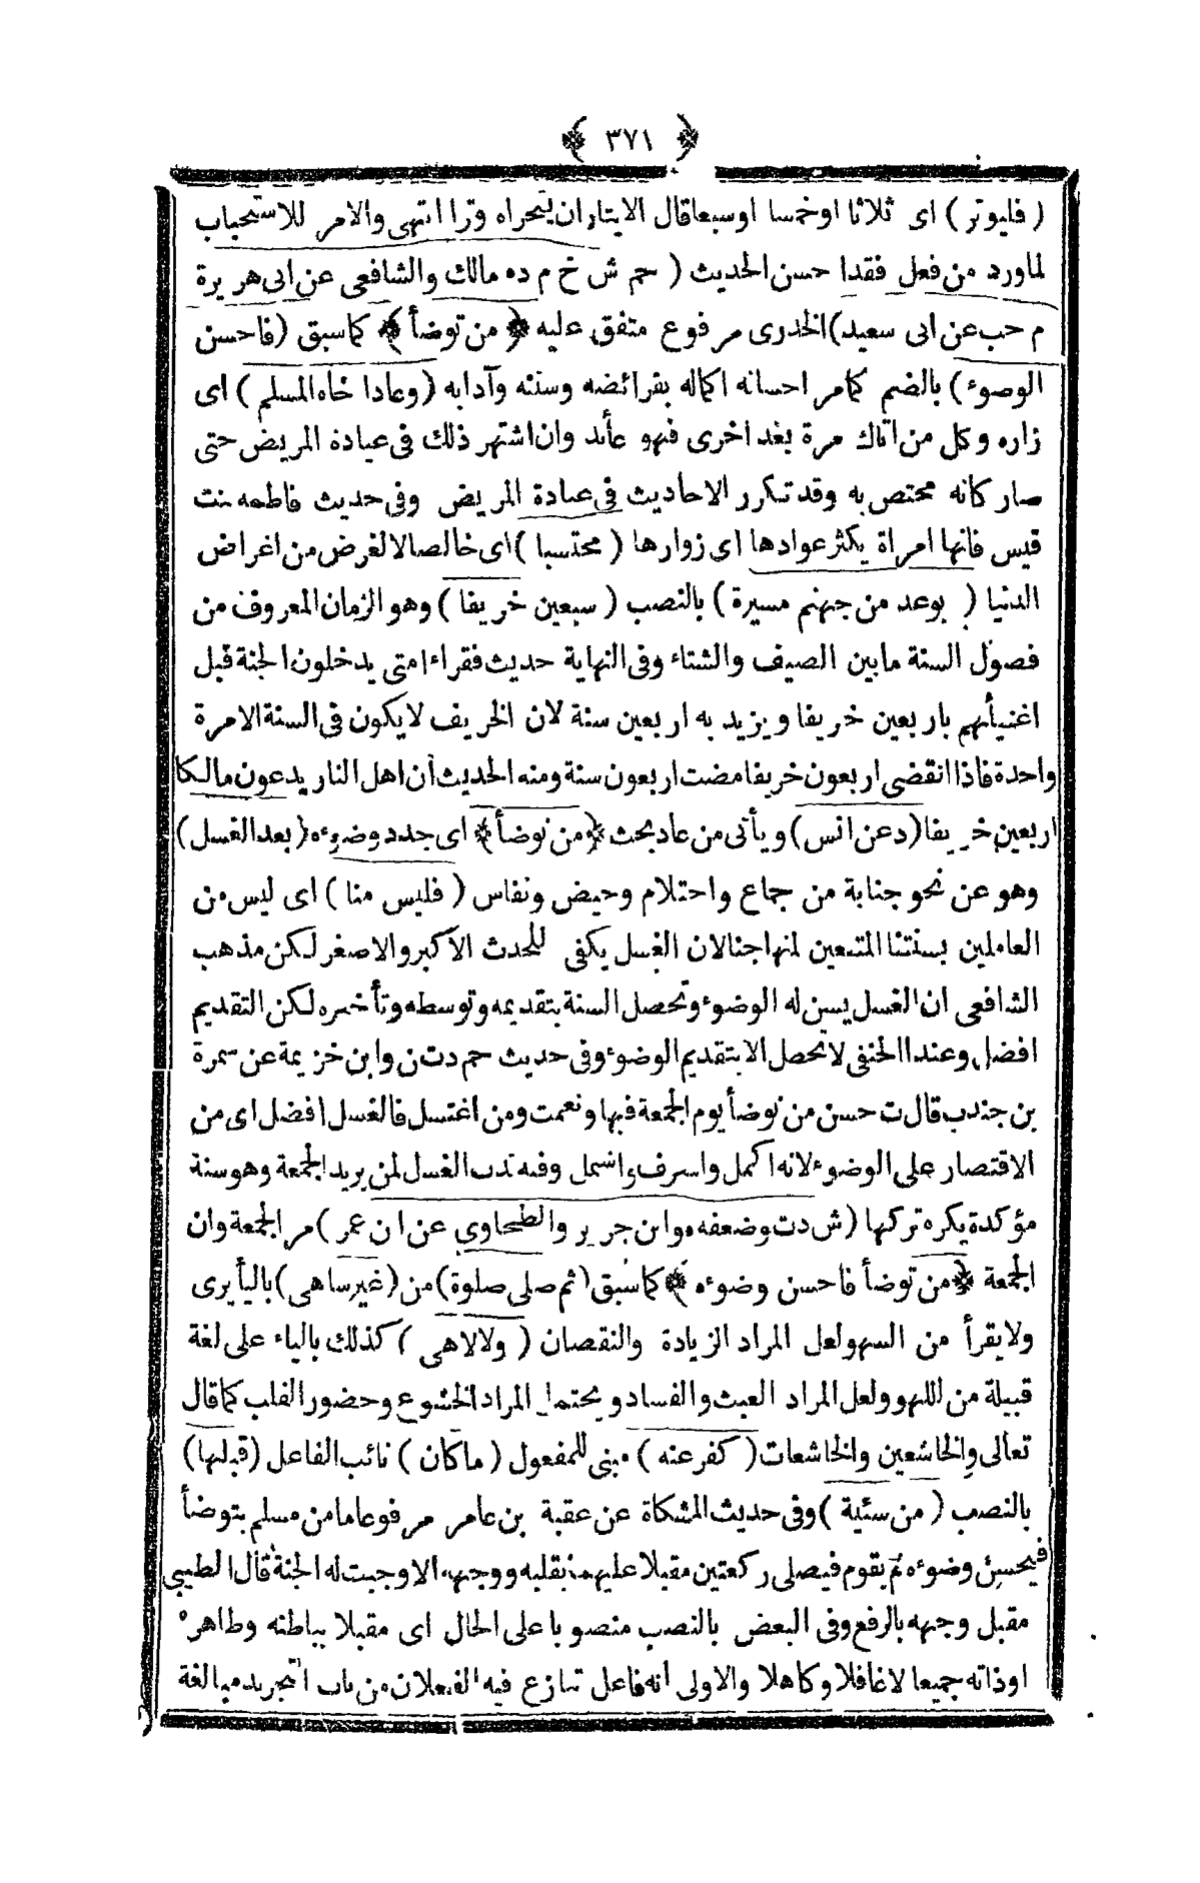 ﴿ ٣٧١ ﴾
( فليوتر ) اى ثلاثا اوخمسا اوسبعاقال الايتاران يتحراه وترا انتهى والامر للاستحباب
لماورد من فعل فقدا حسن الحديث ( حم ش خ م ده مالك والشافعى عن ابى هريرة
م حب عن ابى سعيد ) الخدرى مرفوع متفق عليه ﴿ من توضأ ﴾ كما سبق ( فاحسن
الوضوء ) بالضم كمامر احسانه اكماله بفرائضه وسننه وآدابه ( وعادا خاه المسلم ) اى
زاره وكل من اتاك مرة بعد اخرى فهو عأئد وان اشتهر ذلك فى عيادة المريض حتى
صار كانه مختص به وقد تكرر الاحاديث فى عيادة المريض وفى حديث فاطمه بنت
قيس فانها امراة يكثر عوادها اى زوارها ( محتسبا ) اى خالصالالغرض من اغراض
الدنيا ( بوعد من جهنم مسيرة ) بالنصب ( سبعين خريفا ) وهو الزمان المعروف من
فصول السنة مابين الصيف والشتاء وفى النهاية حديث فقراء امتى يدخلون الجنة قبل
اغنيأئهم باربعين خريفا ويزيد به اربعين سنة لان الخريف لايكون فى السنة الامرة
واحدة فاذا انقضى اربعون خريفا مضت اربعون سنة ومنه الحديث ان اهل النار يدعون مالكا
اربعين خريفا ( دعن انس ) ويأتى من عاد بحث ﴿ من توضأ ﴾ اى جدد وضوءه ( بعد الغسل )
وهو عن نحو جنابة من جماع واحتلام وحيض ونفاس ( فليس منا ) اى ليس من
العاملين بسنتنا المتبعين لمنهاجنا لان الغسل يكفى للحدث الاكبر والاصغر لكن مذهب
الشافعى ان الغسل يسن له الوضوء وتحصل السنة بتقديمه وتوسطه وتأخيره لكن التقديم
افضل وعندا الحنفى لاتحصل الابتقديم الوضوء وفى حديث حم دت ن وابن خزيمة عن سمرة
بن جندب قال ت حسن من توضأ يوم الجمعة فبها ونعمت ومن اغتسل فالغسل افضل اى من
الاقتصار على الوضوء لانه اكمل واشرف واشمل وفيه ندب الغسل لمن يريد الجمعة وهو سنة
مؤكدة يكره تركها ( ش دت وضعفه ه وابن جرير والطحاوى عن ان عمر ) مر الجمعة وان
الجمعة ﴿ من توضأ فاحسن وضوءه ﴾ كما سبق ( ثم صلى صلوة ) من ( غير ساهى ) باليأيرى
ولايقرأ من السهو لعل المراد الزيادة والنقصان ( ولالاهى ) كذلك بالياء على لغة
قبيلة من اللهو ولعل المراد العبث والفساد ويحتمل المراد الخشوع وحضور القلب كماقال
تعالى والخاشعين والخاشعات ( كفر عنه ) مبنى للمفعول ( ماكان ) نائب الفاعل ( قبلها )
بالنصب ( من سئية ) وفى حديث المشكاة عن عقبة بن عامر مرفوعا مامن مسلم يتوضأ
فيحسن وضوءه ثم يقوم فيصلى ركعتين مقبلا عليهما بقلبه ووجهه الاوجبت له الجنة قال الطيبى
مقبل وجهه بالرفع وفى البعض بالنصب منصوبا على الحال اى مقبلا بباطنه وظاهره
اوذاته جميعا لاغافلا وكاهلا والاولى انه فاعل تنازع فيه الفعلان من باب التجريد مبالغة